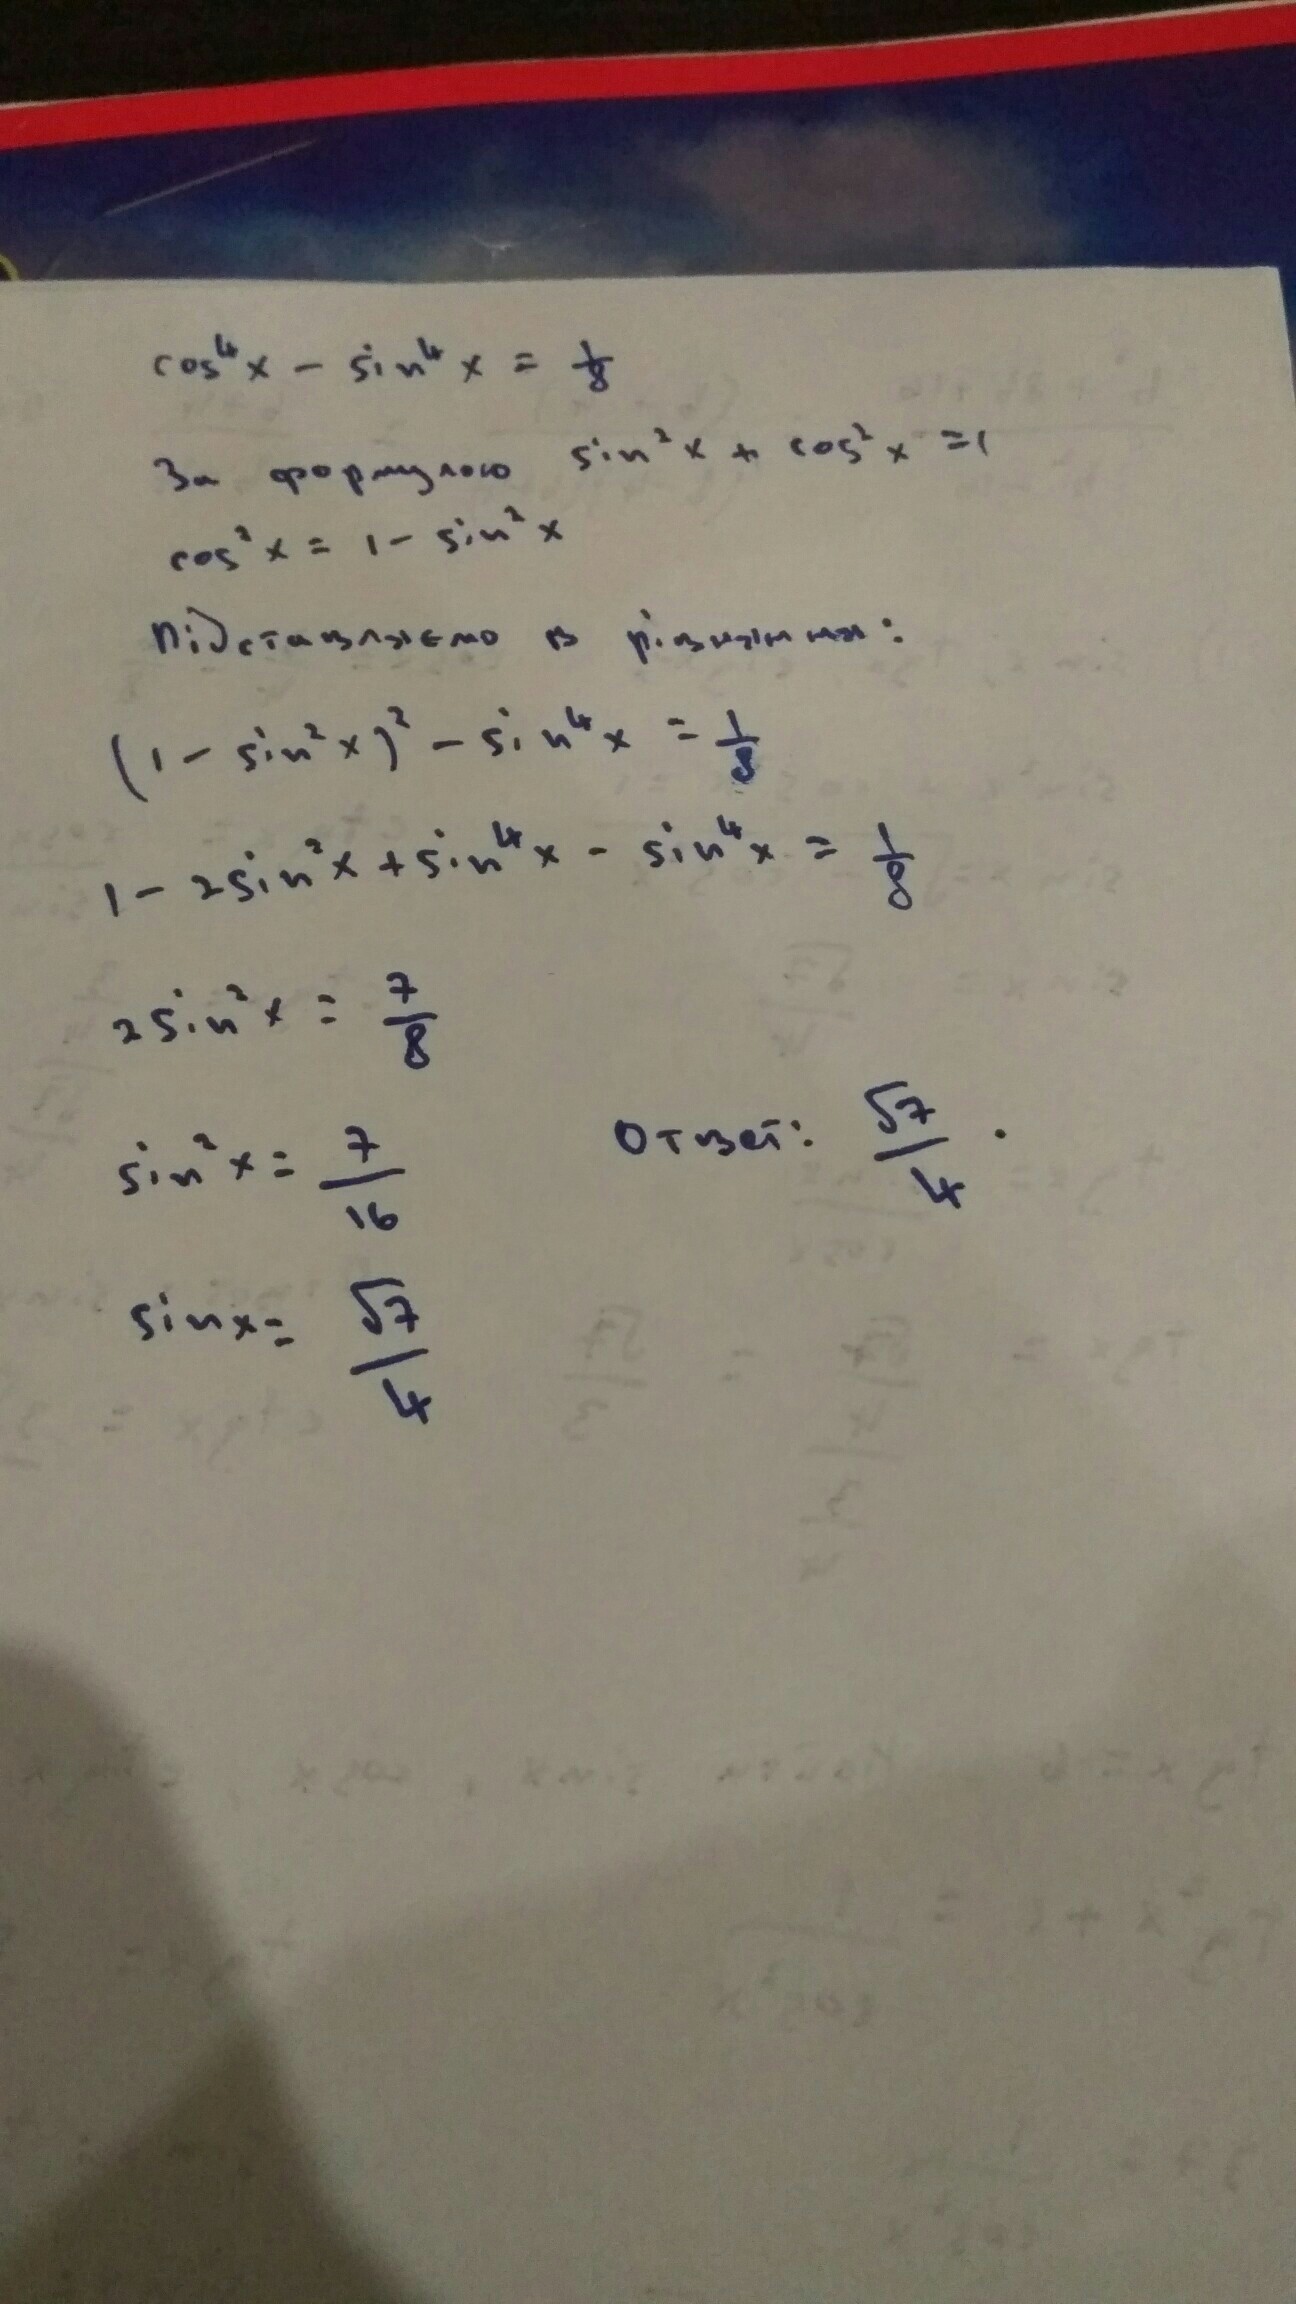 cos⁴x - sin⁴x = 1/8
За формулою sin²x + cos²x = 1
cos²x = 1 - sin²x
Підставляємо в рівняння:
(1 - sin²x)² - sin⁴x = 1/8
1 - 2sin²x + sin⁴x - sin⁴x = 1/8
2sin²x = 7/8
sin²x = 7/16
Ответ: √7/4.
sinx = √7/4